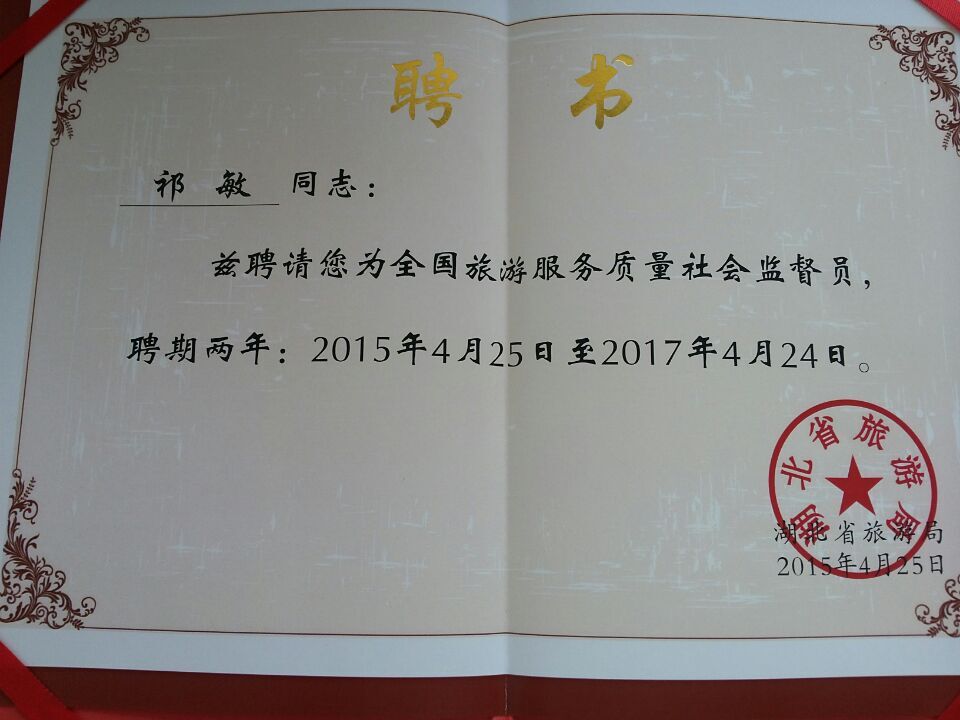 聘书
祁敏 同志：
兹聘请您为全国旅游服务质量社会监督员，
聘期两年：2015年4月25日至2017年4月24日。
湖北省旅游局
湖北省旅游局
2015年4月25日